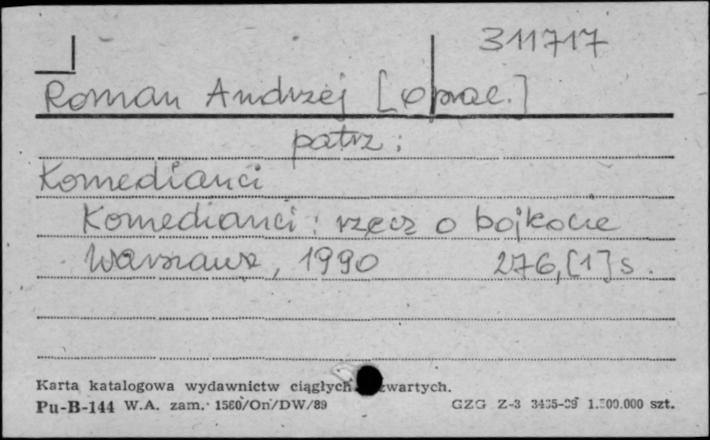 311717
Roman Andrzej [oprac.]
patrz:
Komedianci
Komedianci: rzecz o bojkocie
Warszawa, 1990 276,[1]s.
Karta katalogowa wydawnictw ciągłych czwartych.
Pu-B-144 W.A. zam. 1560/On/DW/89 GZG Z-3 szt.